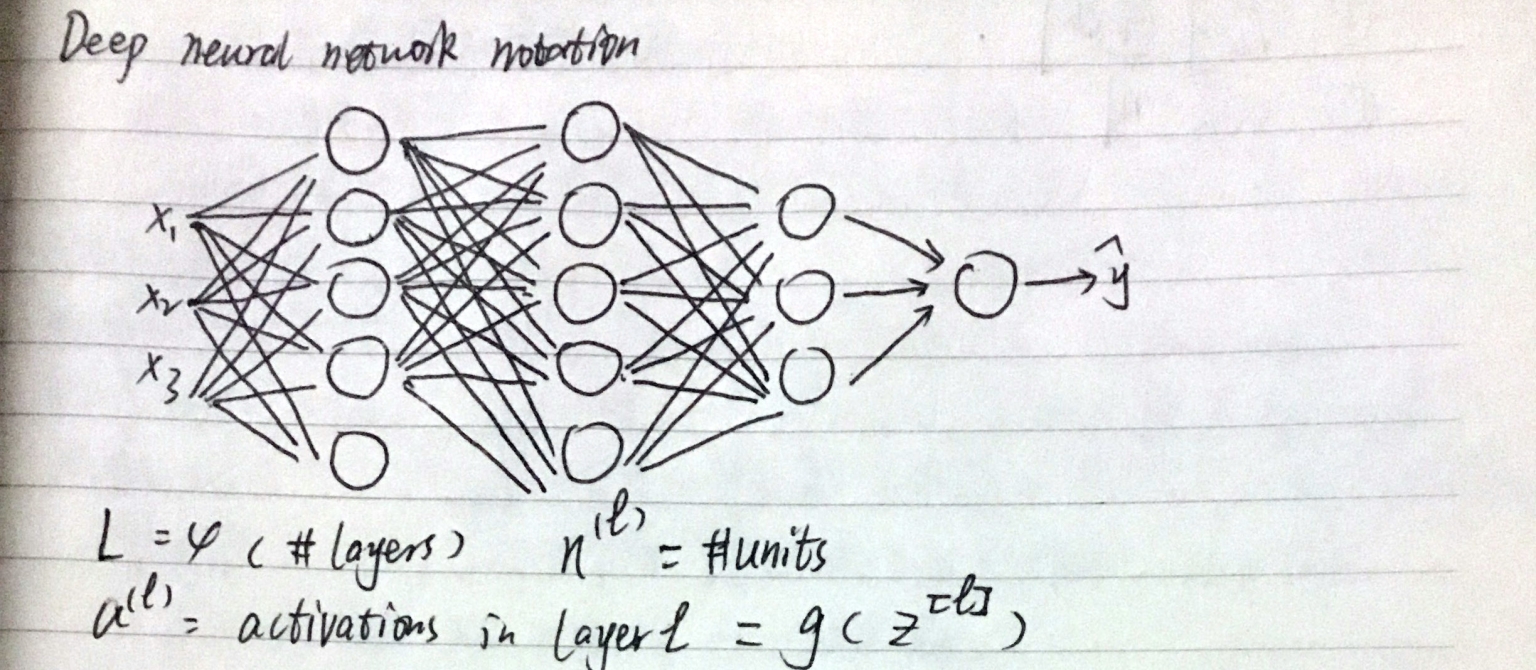 Deep neural network notation
x₁
x₂
x₃
ŷ
L = 4 (# layers) n⁽ˡ⁾ = #units
a⁽ˡ⁾ = activations in layer l = g( z[l] )